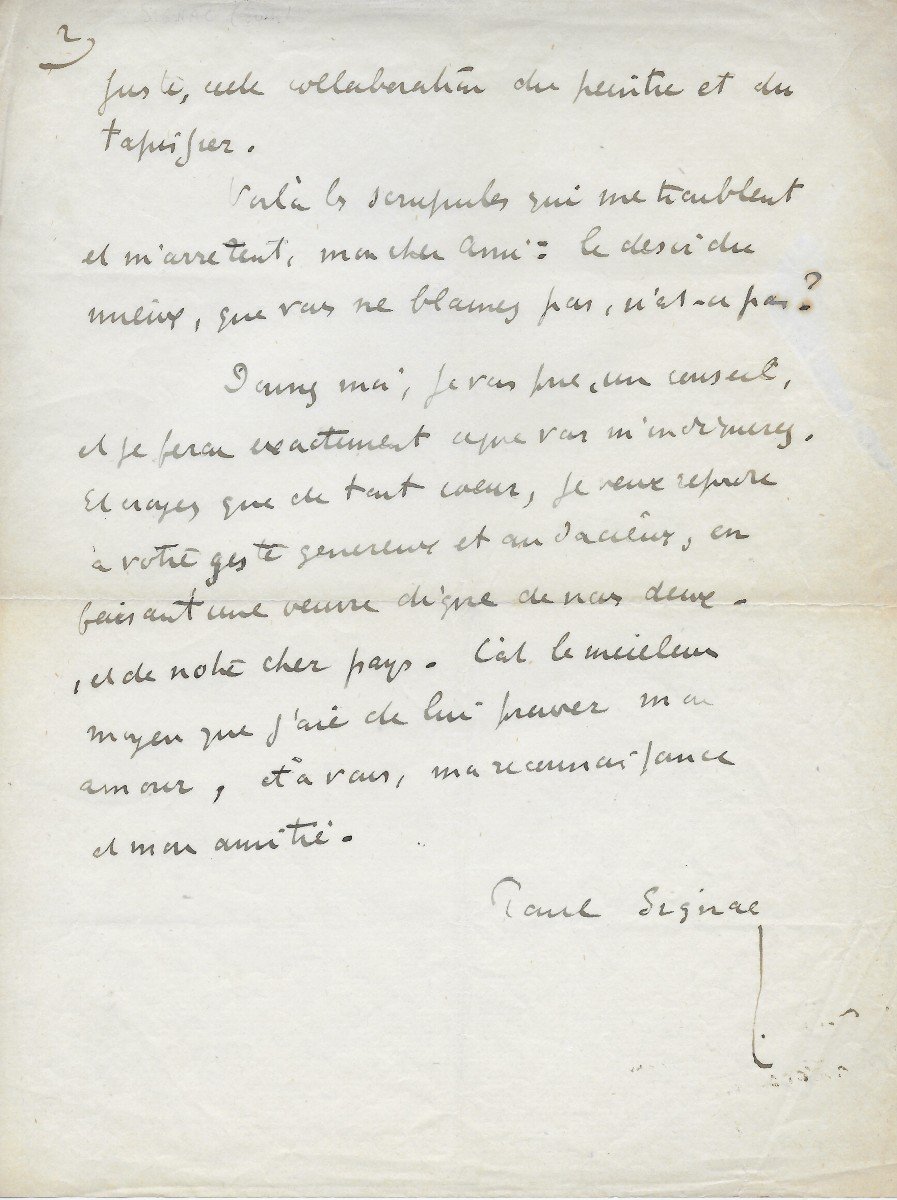 2
juste, cette collaboration du peintre et du
tapissier.
Voilà les scrupules qui me troublent
et m'arretent, mon cher Ami : le desir du
mieux, que vous ne blamez pas, n'est-ce pas ?
Donnez moi, je vous prie, un conseil,
et je ferai exactement ce que vous m'indiquerez.
Et croyez que de tout coeur, je veux repondre
à votre geste genereux et audacieux, en
faisant une oeuvre digne de nous deux.
, et de notre cher pays. C'est le meilleur
moyen que j'aie de lui prouver mon
amour, et à vous, ma reconnaissance
et mon amitié.
Paul Signac